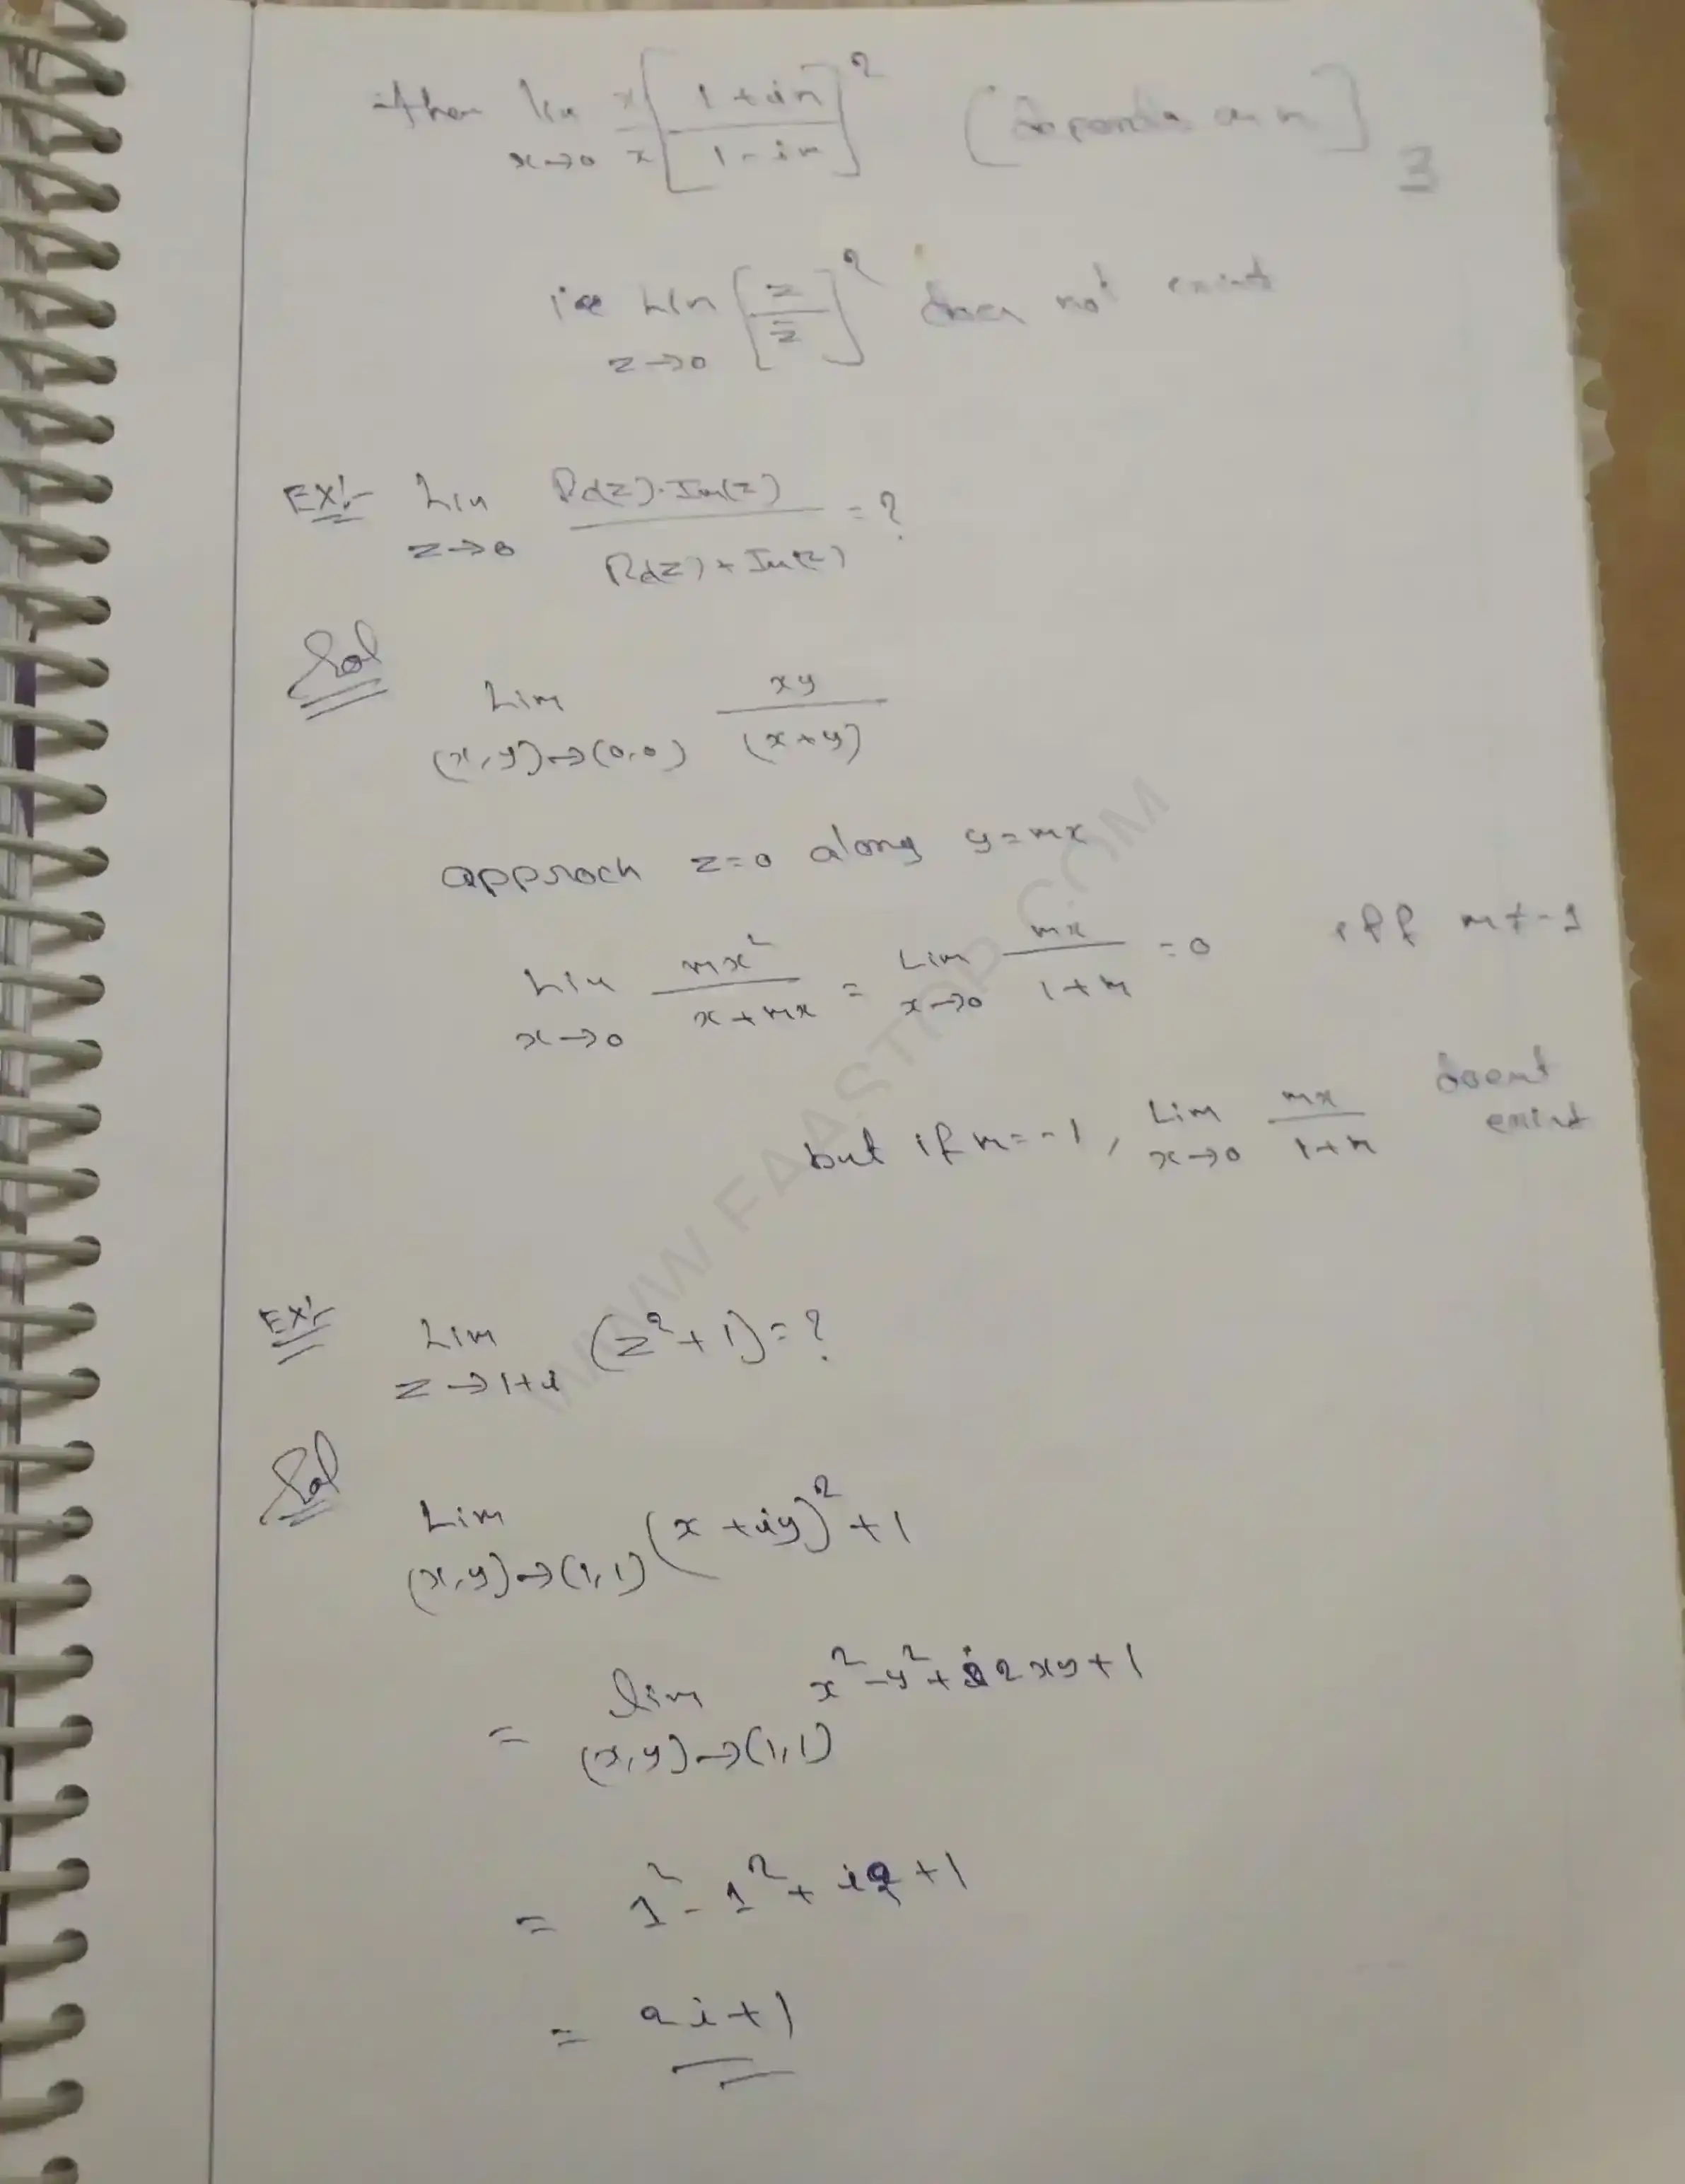 then lim x→0 x/x [ (1+im)/(1-im) ]² [depends on m]
3
ie Lim z→0 [ z/z̄ ]² does not exist
EX:- Lim z→0 Re(z)·Im(z) / Re(z)+Im(z) = ?
Sol
Lim (x,y)→(0,0) xy/(x+y)
approch z=0 along y=mx
Lim x→0 mx²/x+mx = Lim x→0 mx/1+m = 0 iff m≠-1
but if m=-1, Lim x→0 mx/1+m doent exist
EX:- Lim z→1+i (z²+1)=?
Sol
Lim (x,y)→(1,1) (x+iy)²+1
= lim (x,y)→(1,1) x²-y²+i2xy+1
= 1²-1²+i2+1
= 2i+1
WWW.FAASTOP.COM